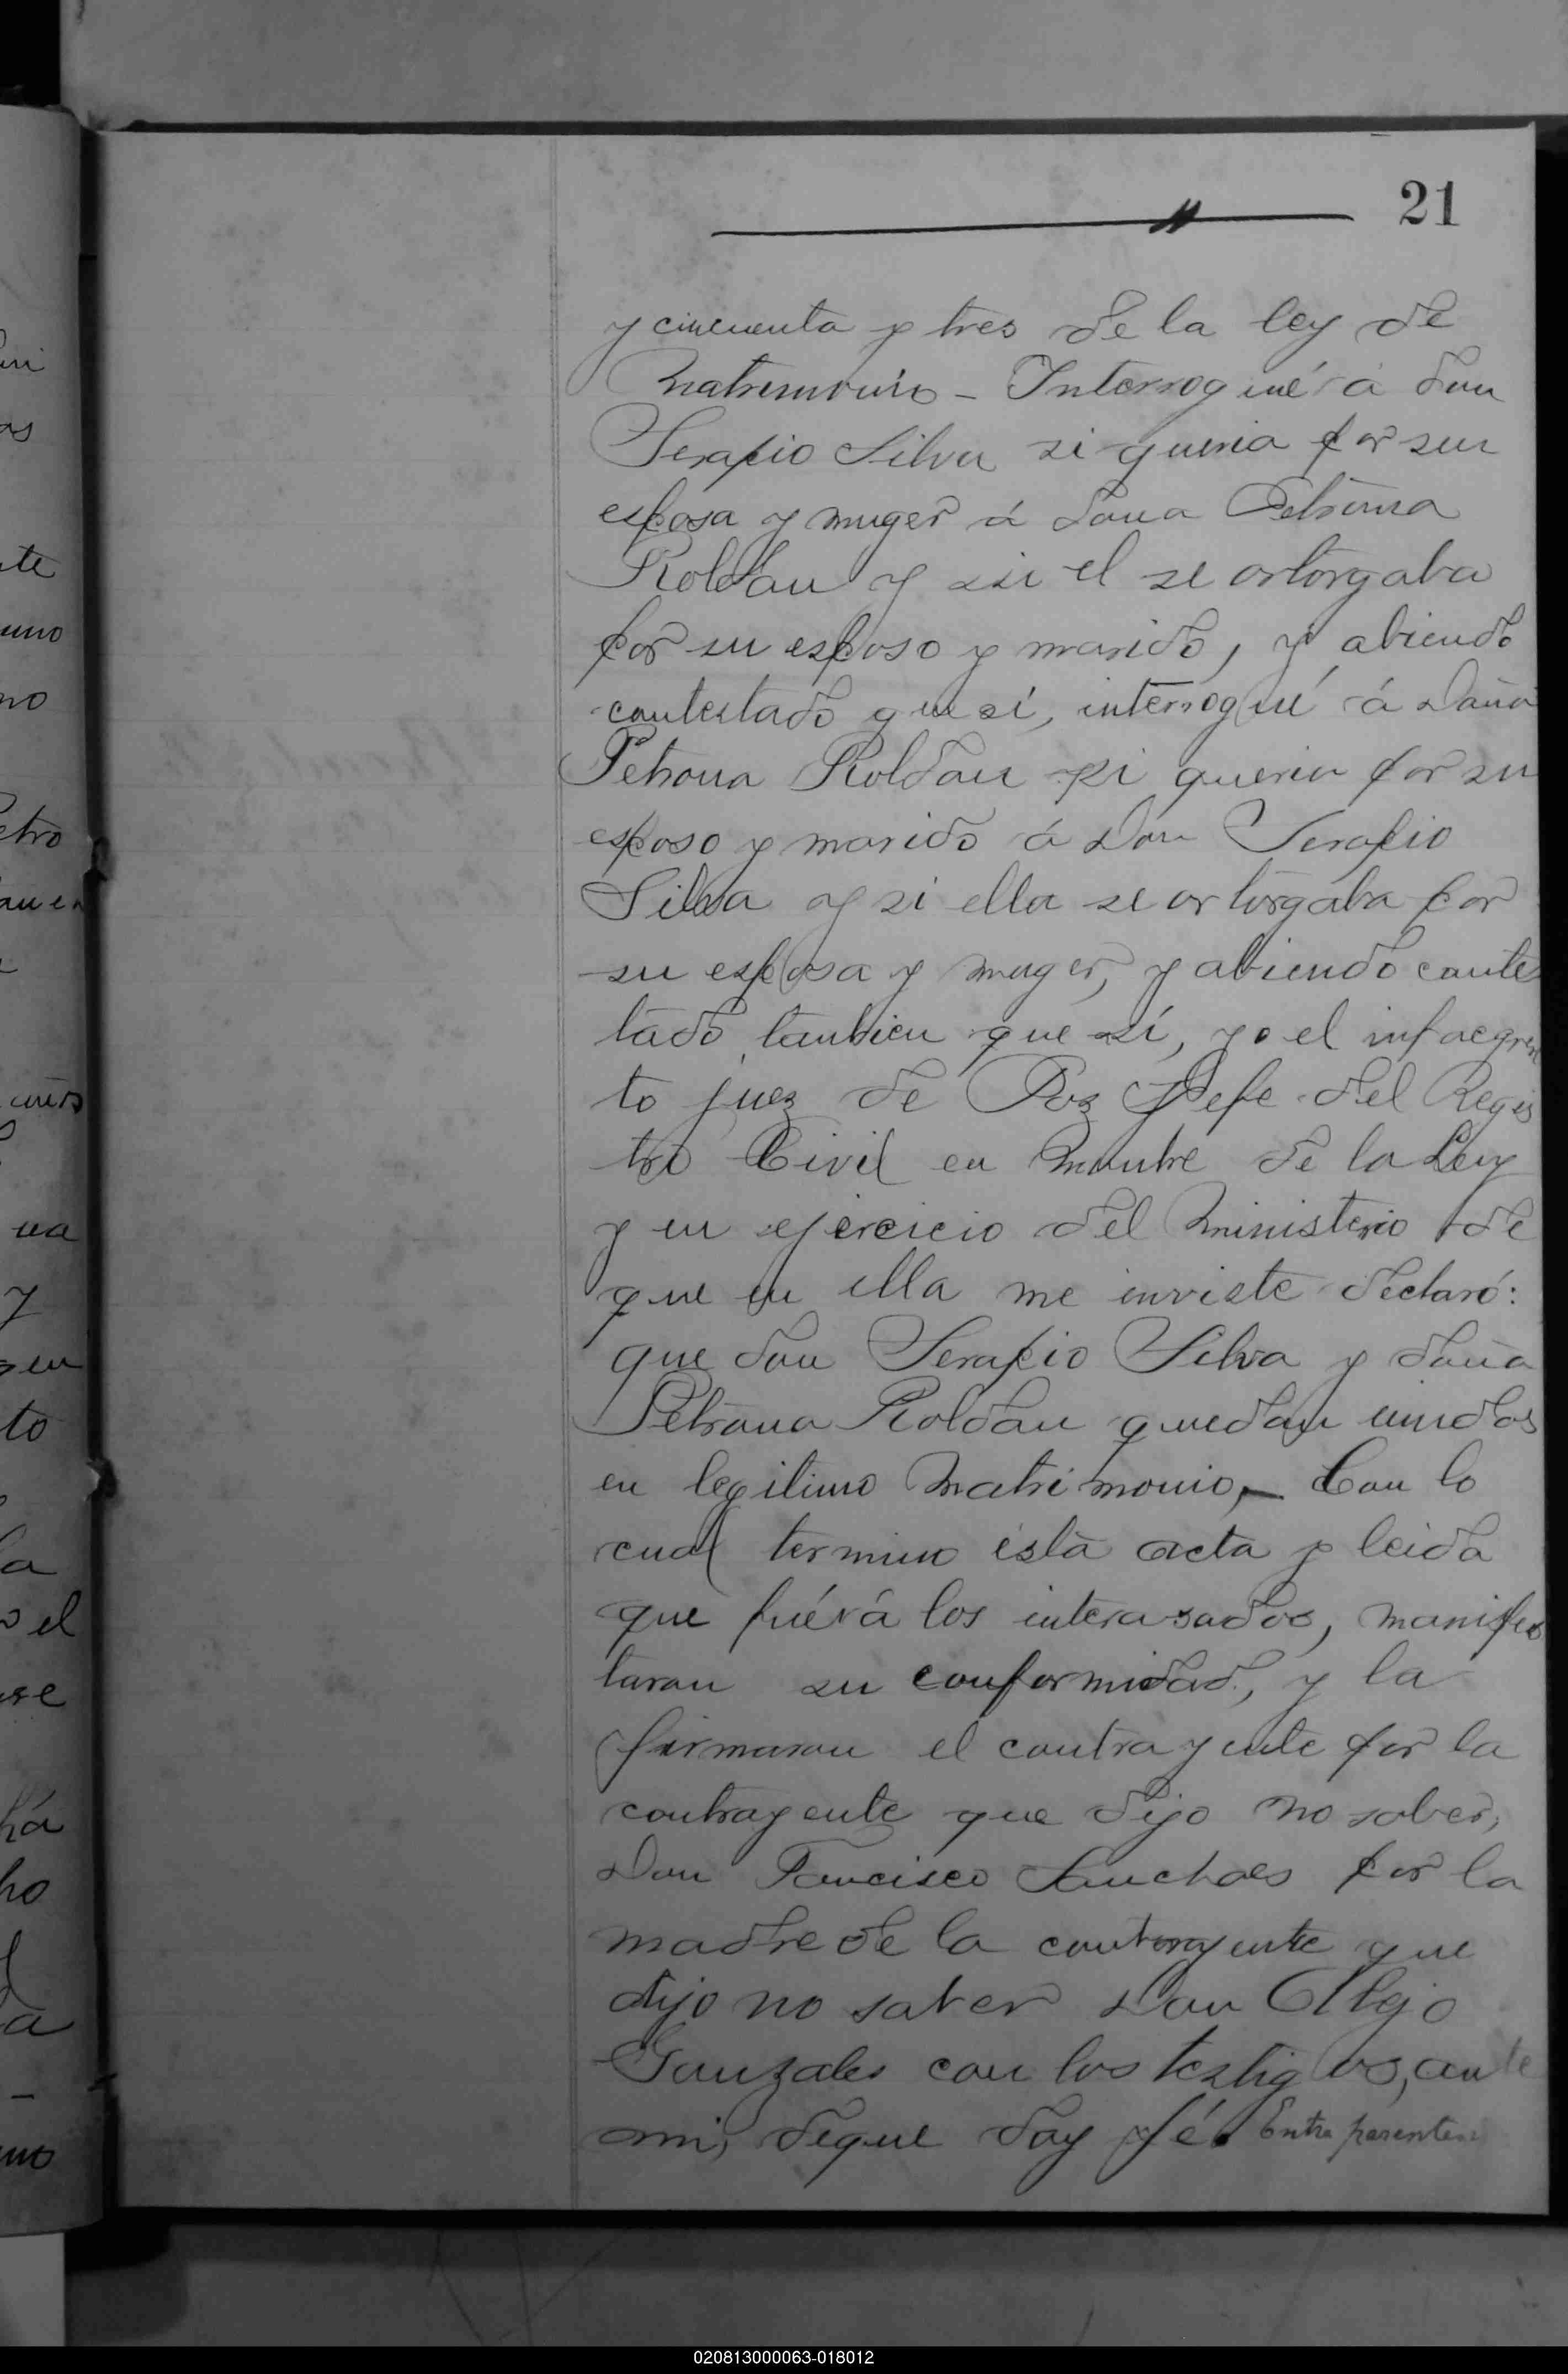 21
y cincuenta y tres de la ley de
Matrimonio - Interrogué á don
Serapio Silva si queria por su
esposa y muger á dona Petrona
Roldan y si el se ortorgaba
por su esposo y marido, y abiendo
contestado que sí, interrogué á Doña
Petrona Roldan si queria por su
esposo y marido á Don Serapio
Silva y si ella se ortorgaba por
su esposa y muger, y abiendo contes
tado tambien que sí, yo el infraescri
to juez de Paz Jefe del Regis
tro Civil en Nombre de la Ley
y en ejercicio del Ministerio de
que en ella me inviste declaró:
que don Serapio Silva y doña
Petrona Roldan quedan unidos
en legitimo Matrimonio, - Con lo
cual termino ésta acta y leida
que fué á los interasados, manifes
taron su conformidad, y la
firmaron el contrayente por la
contrayente que dijo no saber,
Don Fancisco Sanchaes por la
madre de la contrayente que
dijo no saber Don Alejo
Gonzales con los testigos, ante
mi, deque doy fé. Entre parentesis
ni
as
te
uno
no
etro
na
y
to
la
el
se
há
ho
a
mo
020813000063-018012